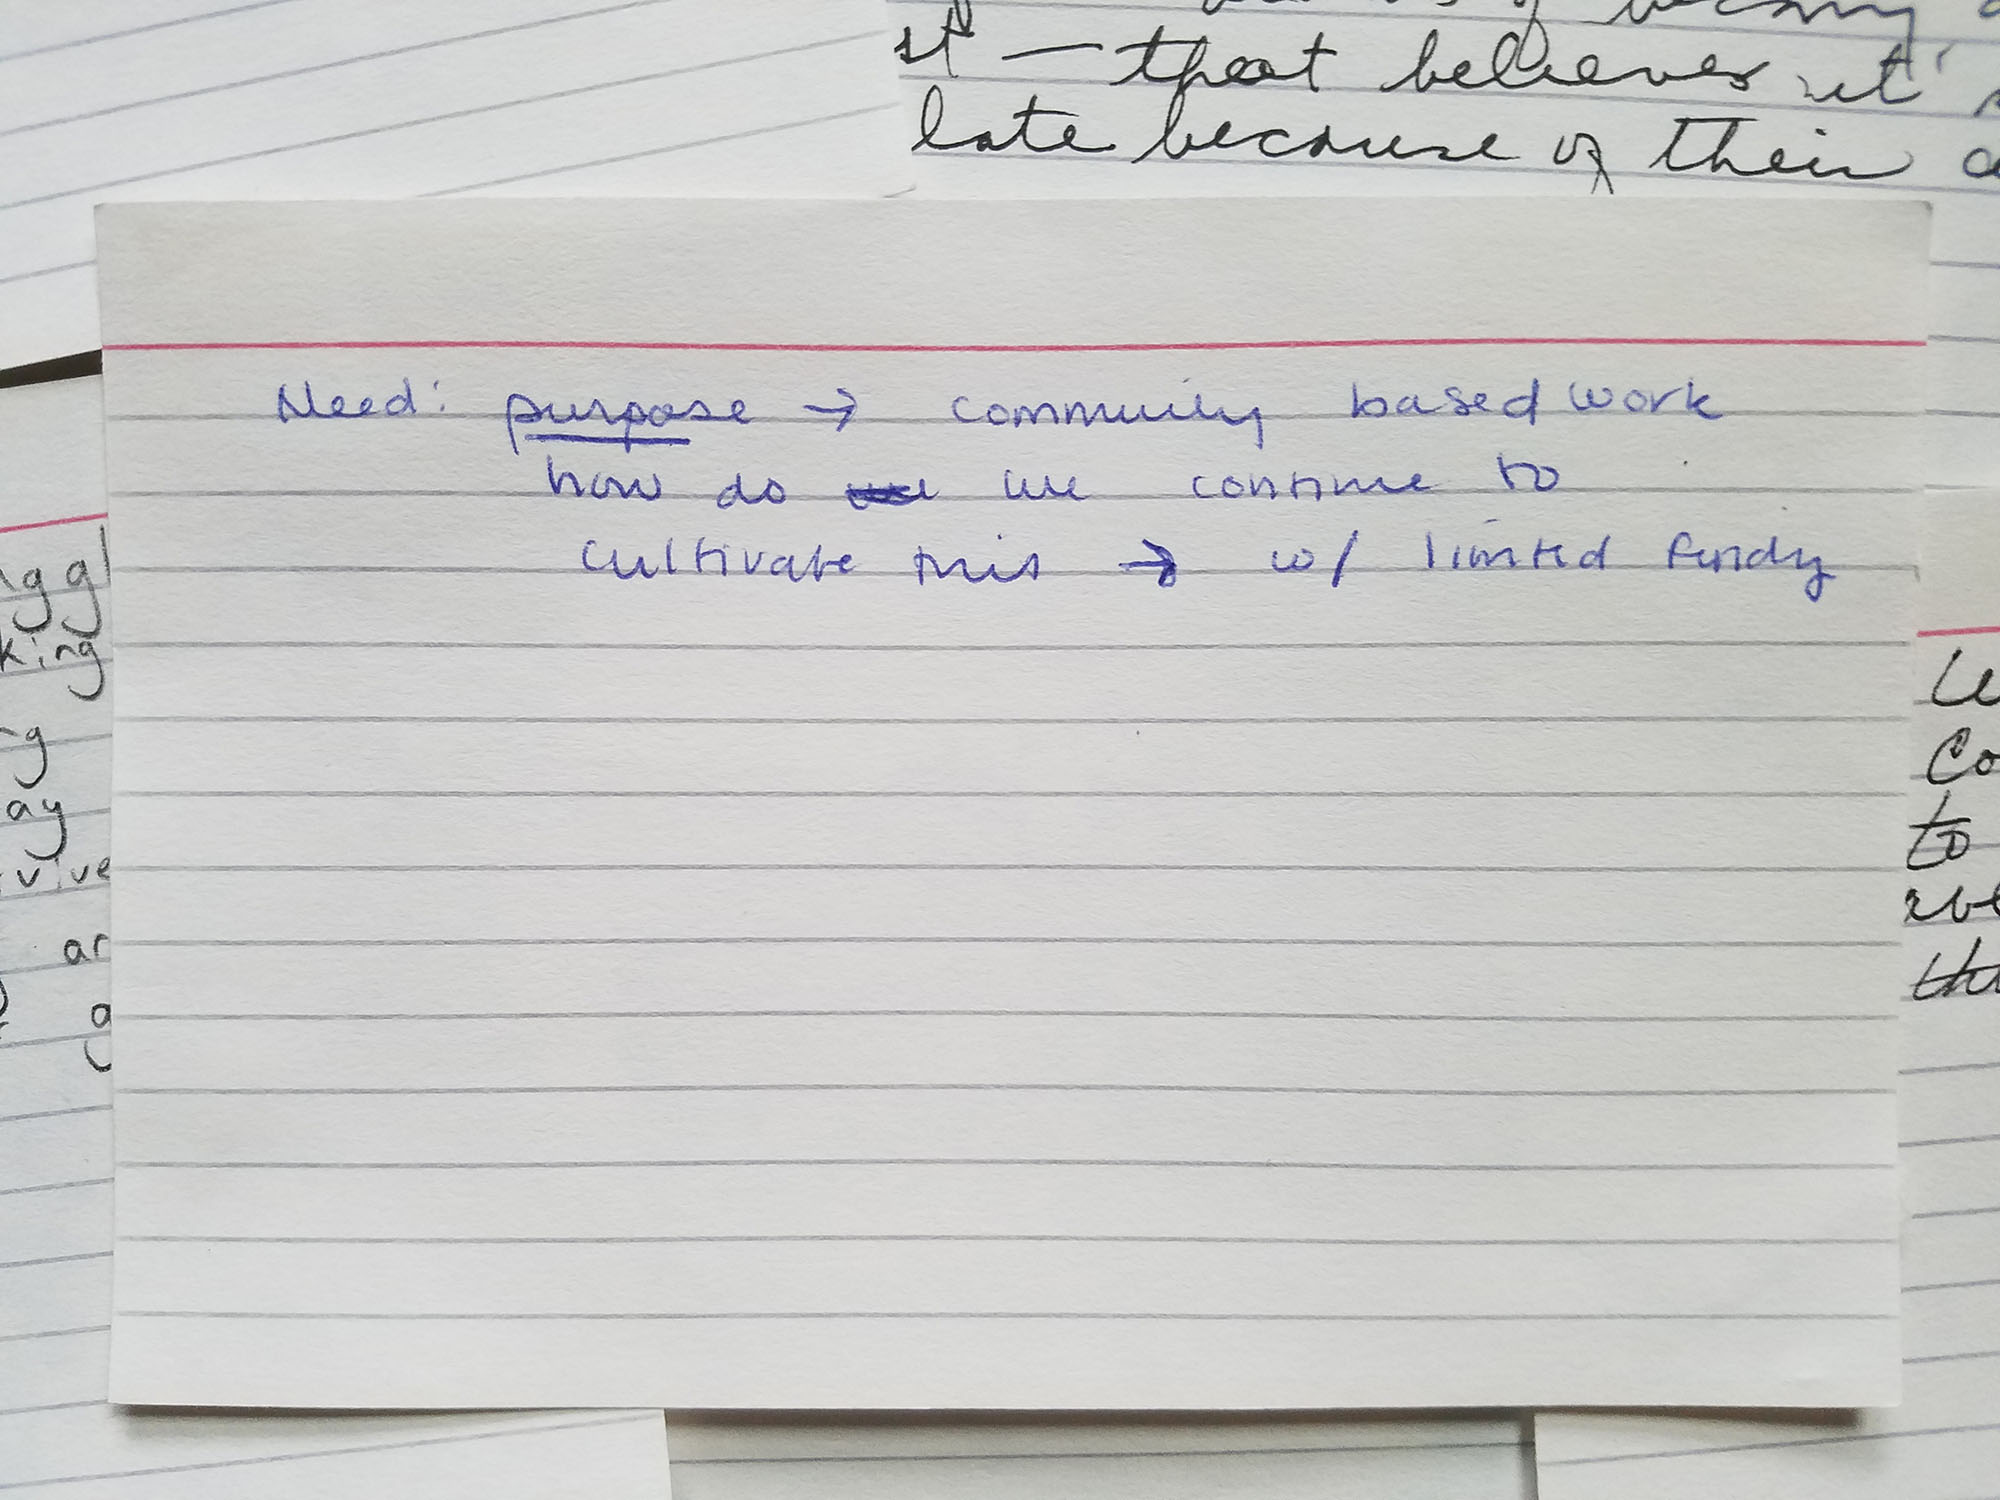 st — that believes it's
late because of their
Need: purpose → community based work
how do we continue to
cultivate this → w/ limited funding
king
ay
ar
to